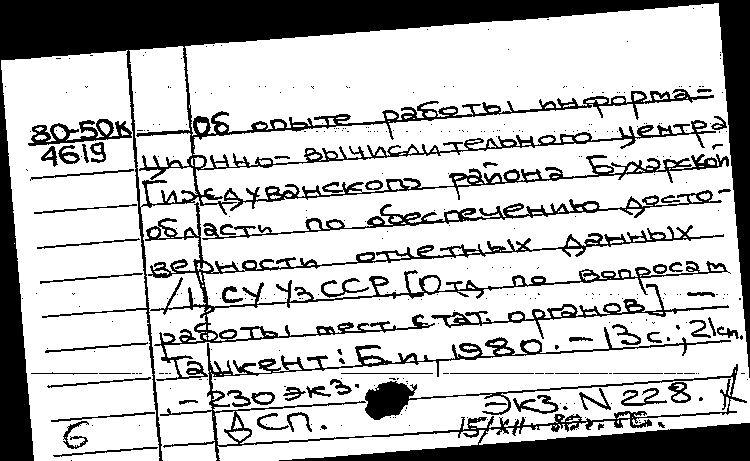 80-50к
4619
Об опыте работы информа=
ционно=вычислительного центра
Гиждуванского района Бухарской
области по обеспечению досто-
верности отчетных данных
/ЦСУ УзССР, [Отд. по вопросам
работы мест. стат. органов]. —
Ташкент: Б.и., 1980. – 13 с.; 21 см.
. – 230 экз.
Экз. N 228.
ДСП.
6